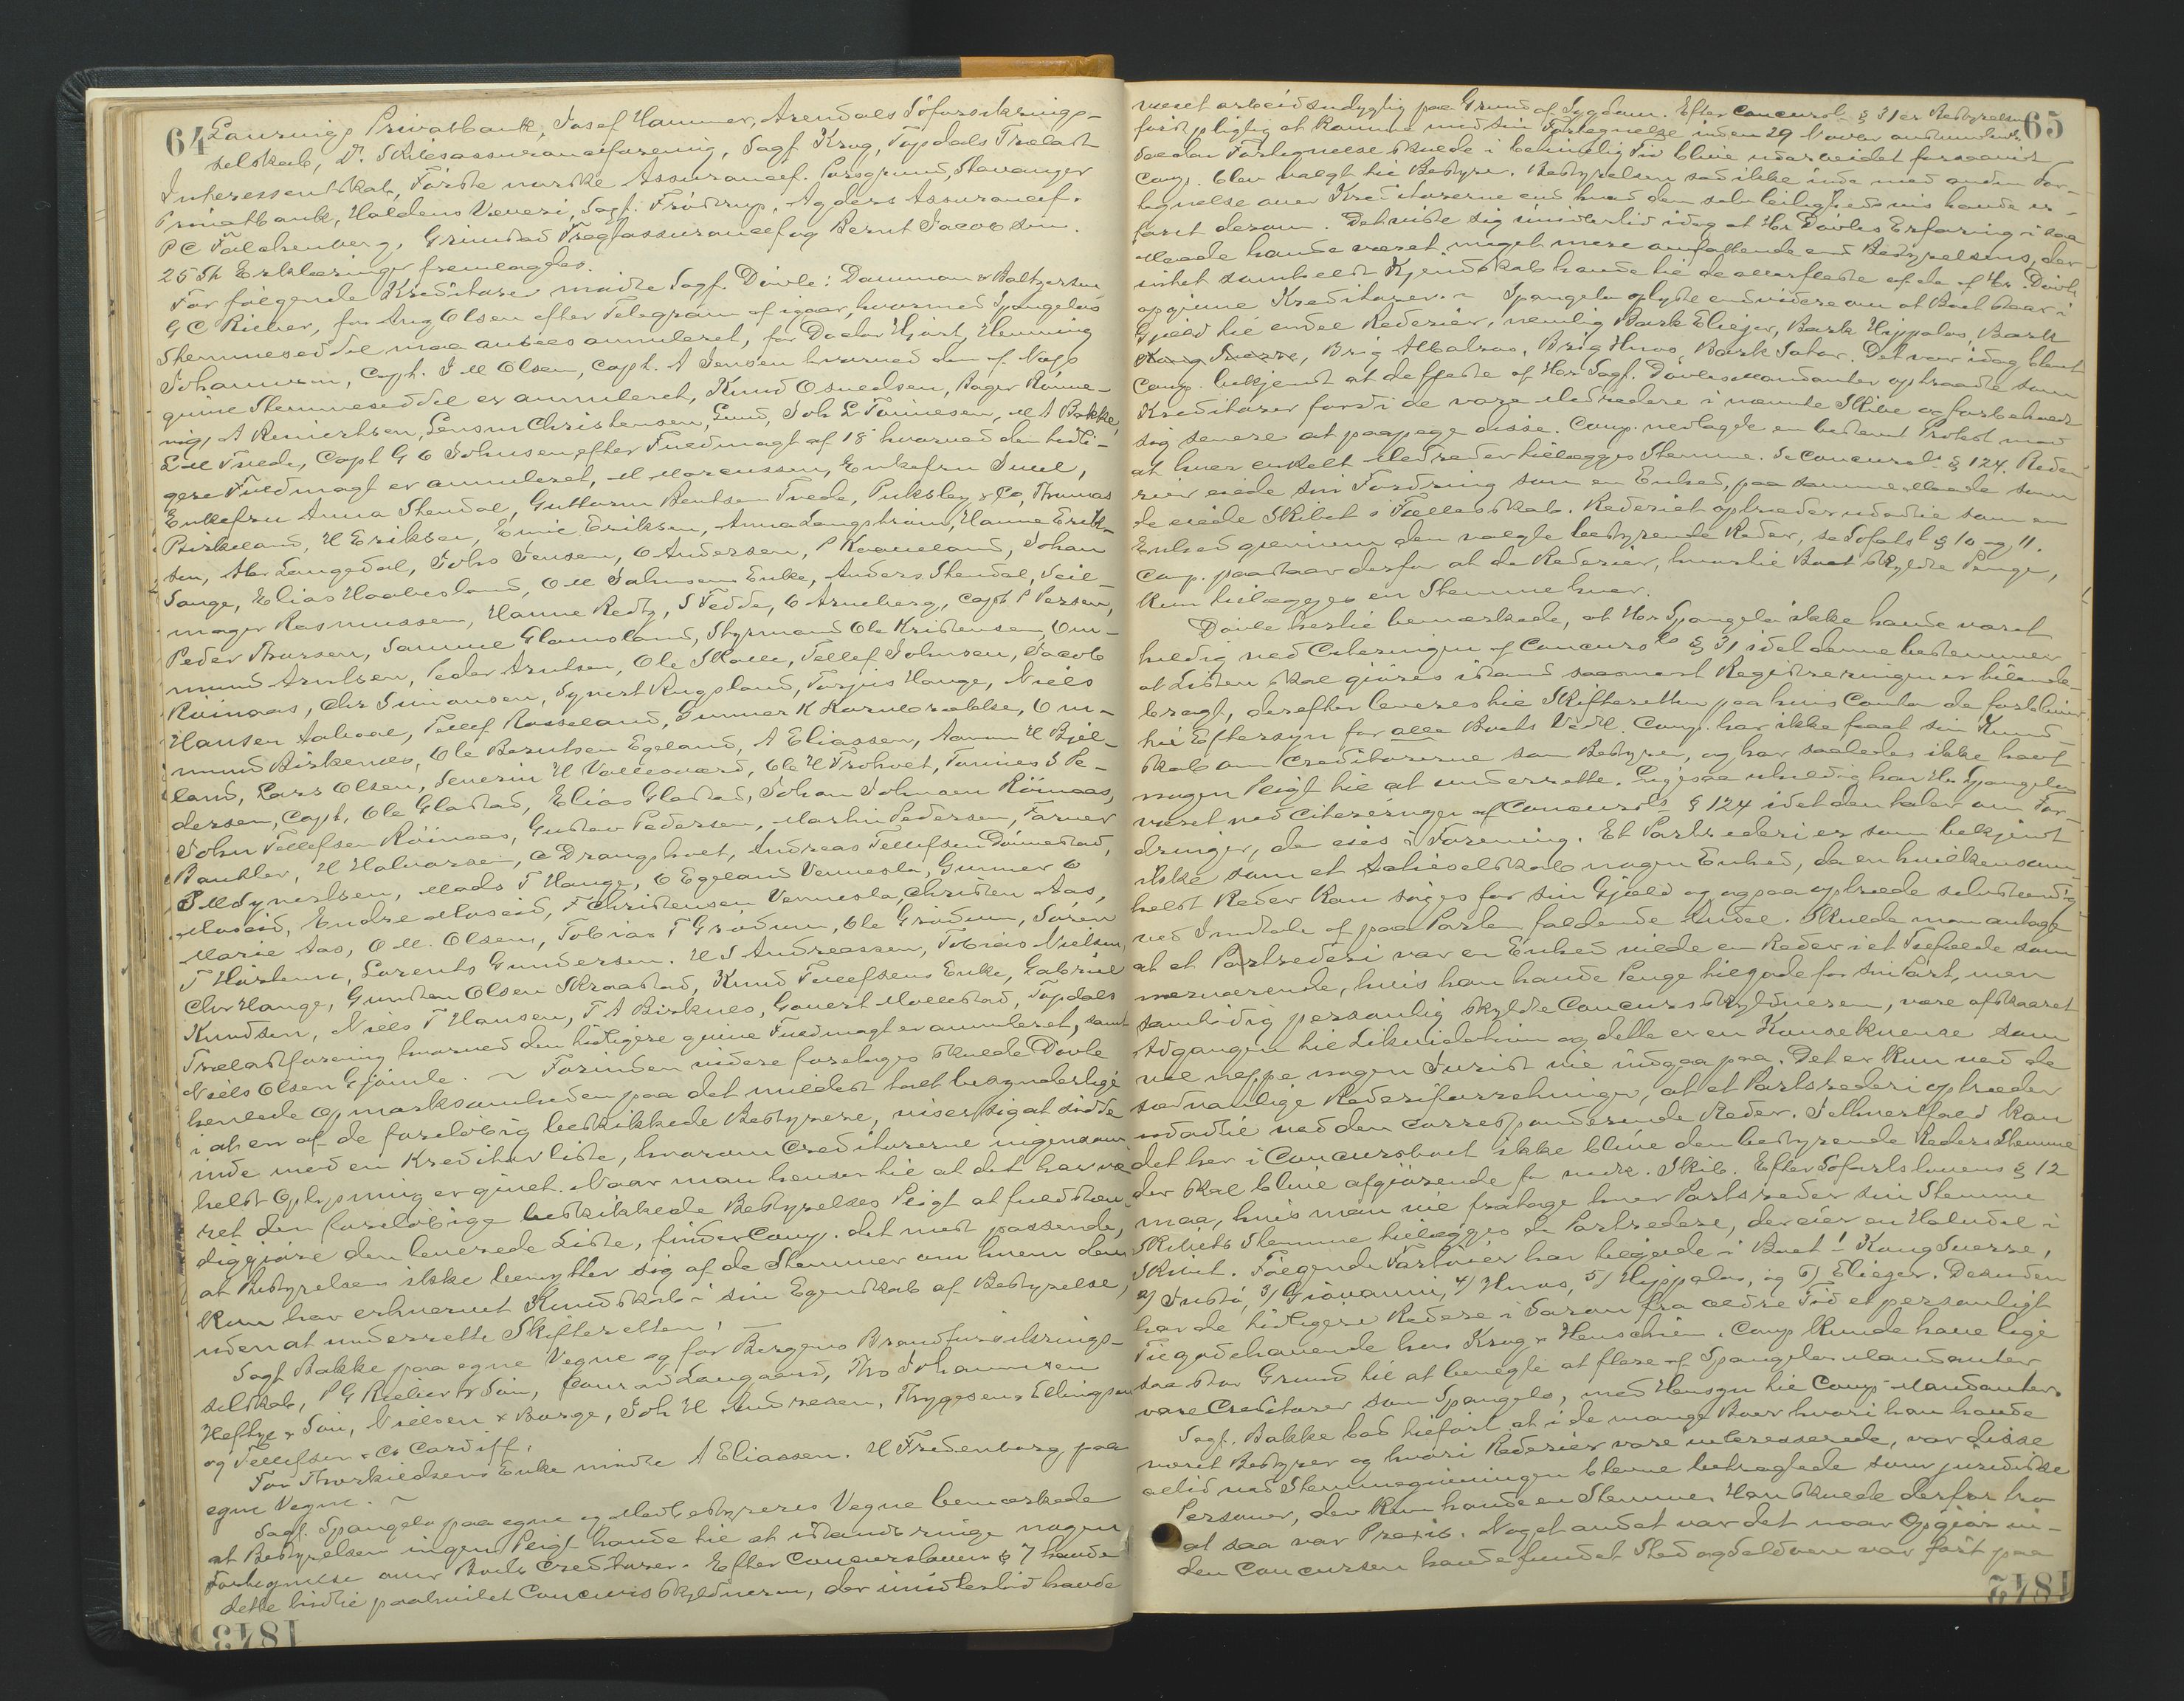 64
Laurvigs Privatbank, Josef Hammer, Arendals Söforsikrings-
selskab, D. Skibsassuranceforening, Sagf Krog, Topdals Trælast
Interessentskab, Förste norske Assurancef. Porsgrund, Stavanger
Privatbank, Haldens Væveri, Sagf. Fröstrup, Agders Assurancef.
P C Falchenberg, Grimstad Fragtassurancef og Bernt Jacobsen.
25 St Erklæringer fremlagdes.
For fölgende Kreditorer mödte Sagf. Dövle: Damman & Baltzersen
G C Rieber, for Aug Olsen efter Telegram af igaar, hvorved Spangelos
Stemmeseddel maa ansees annulleret, for Doctor Hjort, Henning
Johannesen, Capt. J M Olsen, Capt. A Jensen hvorved den af Nogs
givne Stemmeseddel er annulleret, Knud Osuldsen, Bager Rönne-
nig, A Reniertsen, Lensm Christensen, Lund, Joh L Tönnesen, M A Bakke,
L M Tvede, Capt G O Johnsen efter Fuldmagt af 18' hvorved den tidli-
gere Fuldmagt er annulleret, M Marcussen, Enkefru Juul,
Enkefru Anna Stendal, Guttorm Bentsen Tvede, Puksley & Co, Thomas
Birkeland, H Eriksen, Emil Eriksen, Anna Langström, Hanne Erik-
sen, Abr Langedal, Johs Jensen, O Andersen, P Kaaveland, Johan
Lange, Elias Haabesland, O M Salmesens Enke, Anders Stendal, Seil-
mager Rasmussen, Hanne Redtz, S Fedde, O Arneberg, Capt P Persen,
Peder Thorsen, Samuel Flamsland, Styrmand Ole Kristensen, Om-
mund Arntsen, Peder Arntsen, Ole Skalle, Tellef Johnsen, Jacob
Röinaas, Chr Simonsen, Synert Rugsland, Torjus Hauge, Niels
Hansen Aalvoel, Tellef Rosseland, Gunner K Kornbrække, Om-
mund Birkenes, Ole Berntsen Egeland, A Eliassen, Aanon H Bjel-
land, Lars Olsen, Severin H Vallesværd, Ole H Frohvet, Tönnes S Pe-
dersen, Capt, Ole Gladstad, Elias Gladstad, Johan Johnsen Röinaas,
John Tellefsen Röinaas, Gustav Pedersen, Martin Pedersen, Farver
Bankler, H Halvorsen, C Drangsholt, Andreas Tellefsen Dönnestad,
P M Synertsen, Mads T Hauge, O Egeland Vennesla, Gunner O
Moseid, Endre Moseid, F Christensen Vennesla, Christen Aas,
Marie Aas, O M. Olsen, Tobias T Grödum, Ole Grödum, Sören
T Hörtemo, Lorents Gundersen. H S Andreassen, Tobias Nielsen,
Chr Hauge, Gunsten Olsen Skraastad, Knud Tellefsens Enke, Gabriel
Knudsen, Niels T Hansen, T A Birknes, Govert Mollestad, Topdals
Trælastforening hvorved den tidligere givne Fuldmagt er annulleret, samt
Niels Olsen Gjömle. ~ Forinden videre foretages skulde Dövle
henlede Opmærksomheden paa det mildest talt besynderlige
i at en af de foreløbig beskikkede Bestyrere, viser sig at sidde
inde med en Kreditorliste, hvorom Creditorerne nigensom
helst Oplysning er givet. Naar man henser til at det har væ-
ret den foreløbige beskikkede Bestyrelses Pligt at fuldstæn-
diggjöre den leverede Liste, finder Comp. det mest passende,
at Bestyrelsen ikke benytter sig af de Stemmer om hvem den
kun har erhvervet Kundskab i sin Egenskab af Bestyrelse,
uden at underrette Skifteretten! —
Sagf Bakke paa egne Vegne og for Bergens Brandforsikrings-
selskab, P G Rieber & Sön, Conrad Langaard, Ths Johannesen
Heftye & Sön, Nielsen & Borge, Joh H Andresen, Thygesen & Ellingsen
og Tellefsen & Co Cardiff.
For Thorkildsens Enke mödte A Eliassen. H Fredenborg paa
egne Vegne. ~
Sagf. Spangelo paa egne og Medbestyreres Vegne bemærkede
at Bestyrelsen ingen Pligt havde til at istandbringe nogen
Fortegnelse over Boets Creditorer. Efter Concurslovens § 7 havde
dette hvilet paahvilet Concursskyldneren, der imidlertid havde
1873
65
været arbeidsudygtig paa Grund af Sygdom. Efter Concursl. § 31 er Bestyrelsen
først pligtig at komme med sin Fortegnelse inden 29 Novbr
Saadan Fortegnelse skulde i betimelig Tid blive udarbeidet forsaavidt
Comp. blev valgt til Bestyrer. Bestyrelsen sad ikke inde med anden For-
tegnelse over Kreditorerne end hvad den selv leilighedsvis havde er-
faret derom. Det viste sig imidlertid idag at Hr Dövles Erfaring i saa
Maade havde været meget mere omfattende end Bestyrelsens, der
intet somhelst Kjendskab havde til de allerfleste af de af Hr. Dövle
opgivne Kreditorer. ~ Spangelo oplyste endvidere om at Boet staar i
Gjæld til endel Rederier, nemlig Bark Elieser, Bark Hippalos, Bark
Kong Sverre, Brig Albatros, Brig Hvos, Bark Sator. Det var idag blevet
Comp. bekjendt at de fleste af Hr. Sagf. Dövles Mandanter optraadte som
Kreditorer fordi de vare Medredere i nævnte Skibe og forbeholdt
sig senere at paapege disse. Comp. nedlagde en bestemt Protest mod
at hver enkelt Medreder tillægges Stemme. Se Concursl. § 124. Rede-
rier eiede sin Fordring som en Enhed, paa samme Maade som
de eiede Skibet i Fællesskab. Rederiet optræder udadtil som en
Enhed gjennem den valgte bestyrende Reder, se Söfartsl § 10 og 11.
Comp. paastaar derfor at de Rederier, hvortil Boet skyldte Penge,
kun tillægges en Stemme hver.
Dövle hertil bemærkede, at Hr Spangelo ikke havde været
heldig ved Citeringen af Concursls § 31 idet denne bestemmer
at Listen skal gjöres istand saasnart Registreringen er tilende-
bragt, derefter leveres til Skifteretten paa hvis Contor de forbliver
til Eftersyn for alle Boets Vedk. Comp. har ikke faaet sin Kund-
skab om Creditorerne som Bestyrer, og har saaledes ikke havt
nogen Pligt til at underrette. Ligesaa uheldig har Hr Spangelo
været ved Citeringer af Concursls § 124 idet den taler om For-
dringer, der eies i Forening. Et Partsrederi er som bekjendt
ikke som et Actieselskab nogen Enhed, da en hvilkensom-
helst Reder kan söges for sin Gjæld og ogsaa optræde selvstændig
ved Indtale af paa Parten faldende Andel. Skulde man antage
at et Partrederi var en Enhed vilde en Reder i et Tilfælde som
nærværende, hvis han havde Penge tilgode for sin Part, men
samtidig personlig skyldte Concursskyldneren, være afskaaret
Adgangen til Likvidation og dette er en Konsekvense som
vel neppe nogen Jurist vil indgaa paa. Det er kun ved de
sædvanlige Rederiforretninger, at et Partsrederi optræder
udadtil ved den corresponderende Reder. Ialmindelighed kan
det her i Concursboet ikke blive den bestyrende Reders Stemme
der skal blive afgjörende for vedk. Skib. Efter Sofartslovens § 12
maa, hvis man vil fratage hver Partsreder sin Stemme
Skibets Stemme tillægges de Partredere, der eier en Halvdel i
Skibet. Fölgende Fartöier har tilgode i Boet 1 Kong Sverre,
2) Justa, 3) Giovanni, 4) Hvos, 5) Hippalos, og 6) Elieser. Desuden
har de tidligere Redere i Saron fra ældre Tid et personligt
Tilgodehavende hos Krog & Henschien. Comp kunde have lige
saa stor Grund til at benegte at flere af Spangelos Mandanter
vare Creditorer som Spangelo, med Hensyn til Comps Mandanter.
Sagf. Bakke bad tilfört at i de mange Boer hvori han havde
været Bestyrer og hvori Rederier vare interesserede, var disse
altid ved Stemmegivningen blevne betragtede som juridiske
Personer, der kun havde en Stemme. Han skulde derfor tro
at saa var Praxis. Noget andet var det naar Opgjör in-
den Concursen havde fundet Sted og Saldoen var fört paa
1873